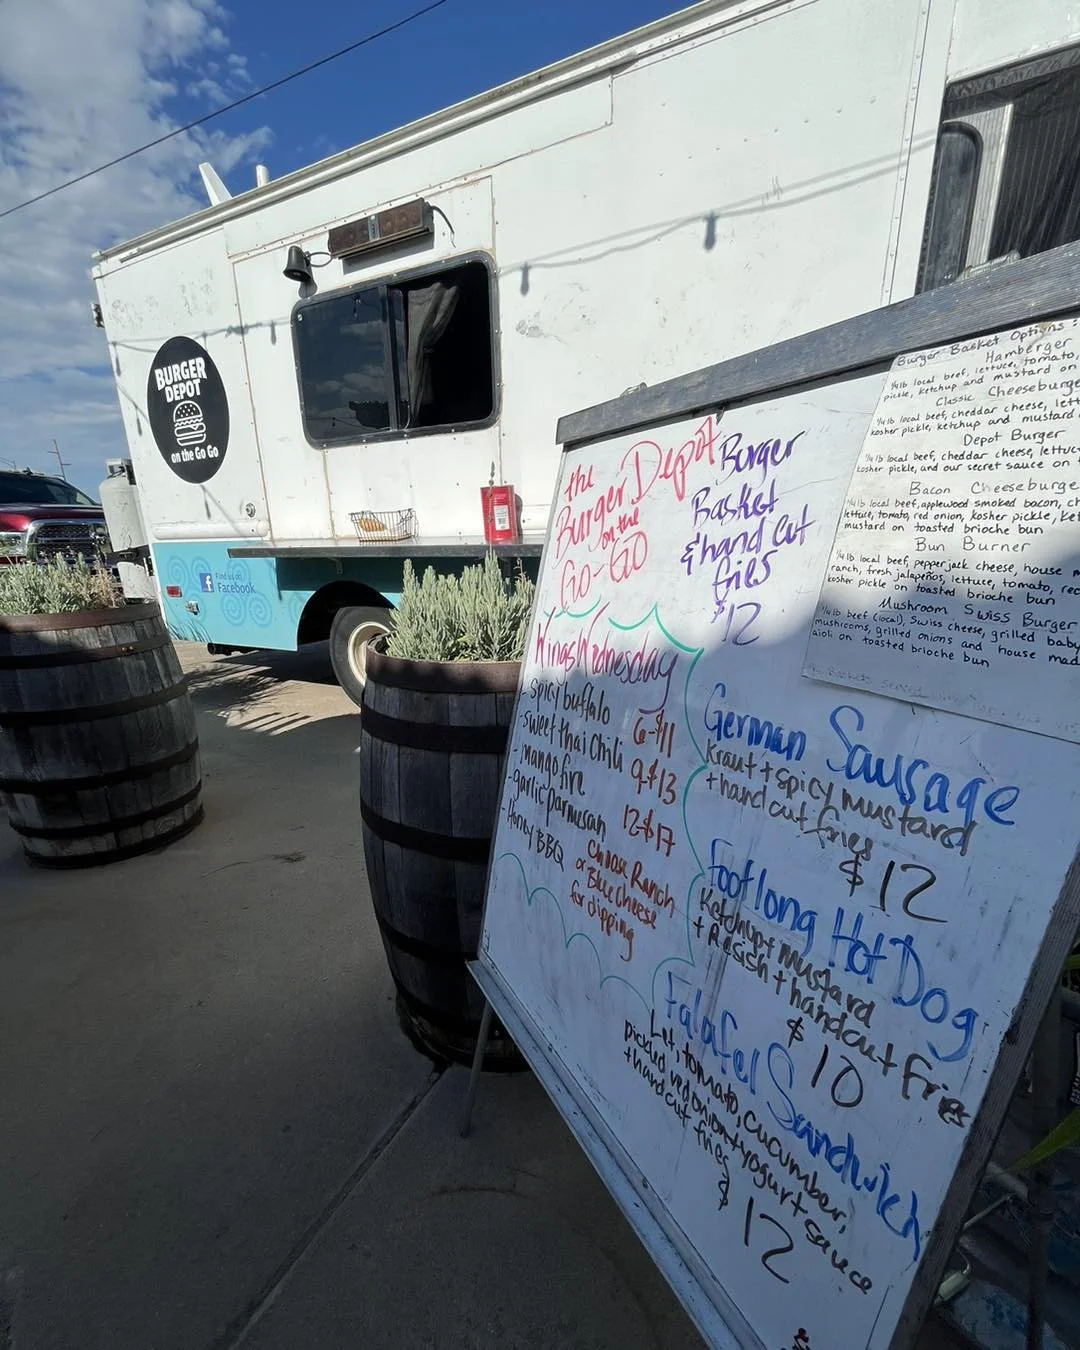 BURGER
DEPOT
on the Go Go
Find us on
Facebook
the
Burger Depot
on the
Go-Go
Burger
Basket
& hand cut
fries
$12
Wings Wednesday
- spicy buffalo
- sweet thai chili
- mango fire
- garlic parmusan
- Honey BBQ
6-$11
9-$13
12-$17
Choose Ranch
or Blue Cheese
for dipping
German Sausage
Kraut + spicy mustard
+ hand cut fries
$12
Footlong Hot Dog
Ketchup + mustard
+ Relish + handcut fries
$10
Falafel Sandwich
Let, tomato, cucumber,
pickled red onion + yogurt sauce
+ hand cut fries
$12
Burger Basket Options:
Hamberger
1/4 lb local beef, lettuce, tomato,
pickle, ketchup and mustard on
Classic Cheeseburge
1/4 lb local beef, cheddar cheese, lett
kosher pickle, ketchup and mustard
Depot Burger
1/4 lb local beef, cheddar cheese, lettuc
kosher pickle, and our secret sauce on
Bacon Cheeseburge
1/4 lb local beef, applewood smoked bacon, ch
lettuce, tomato, red onion, kosher pickle, ket
mustard on toasted brioche bun
Bun Burner
1/4 lb local beef, pepperjack cheese, house m
ranch, fresh jalapeños, lettuce, tomato, red
kosher pickle on toasted brioche bun
Mushroom Swiss Burger
1/4 lb beef (local), Swiss cheese, grilled baby
mushrooms, grilled onions and house mad
aioli on toasted brioche bun